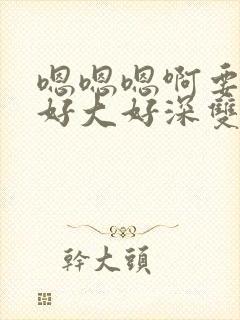 嗯嗯嗯啊要
好大好深雙
幹大頭